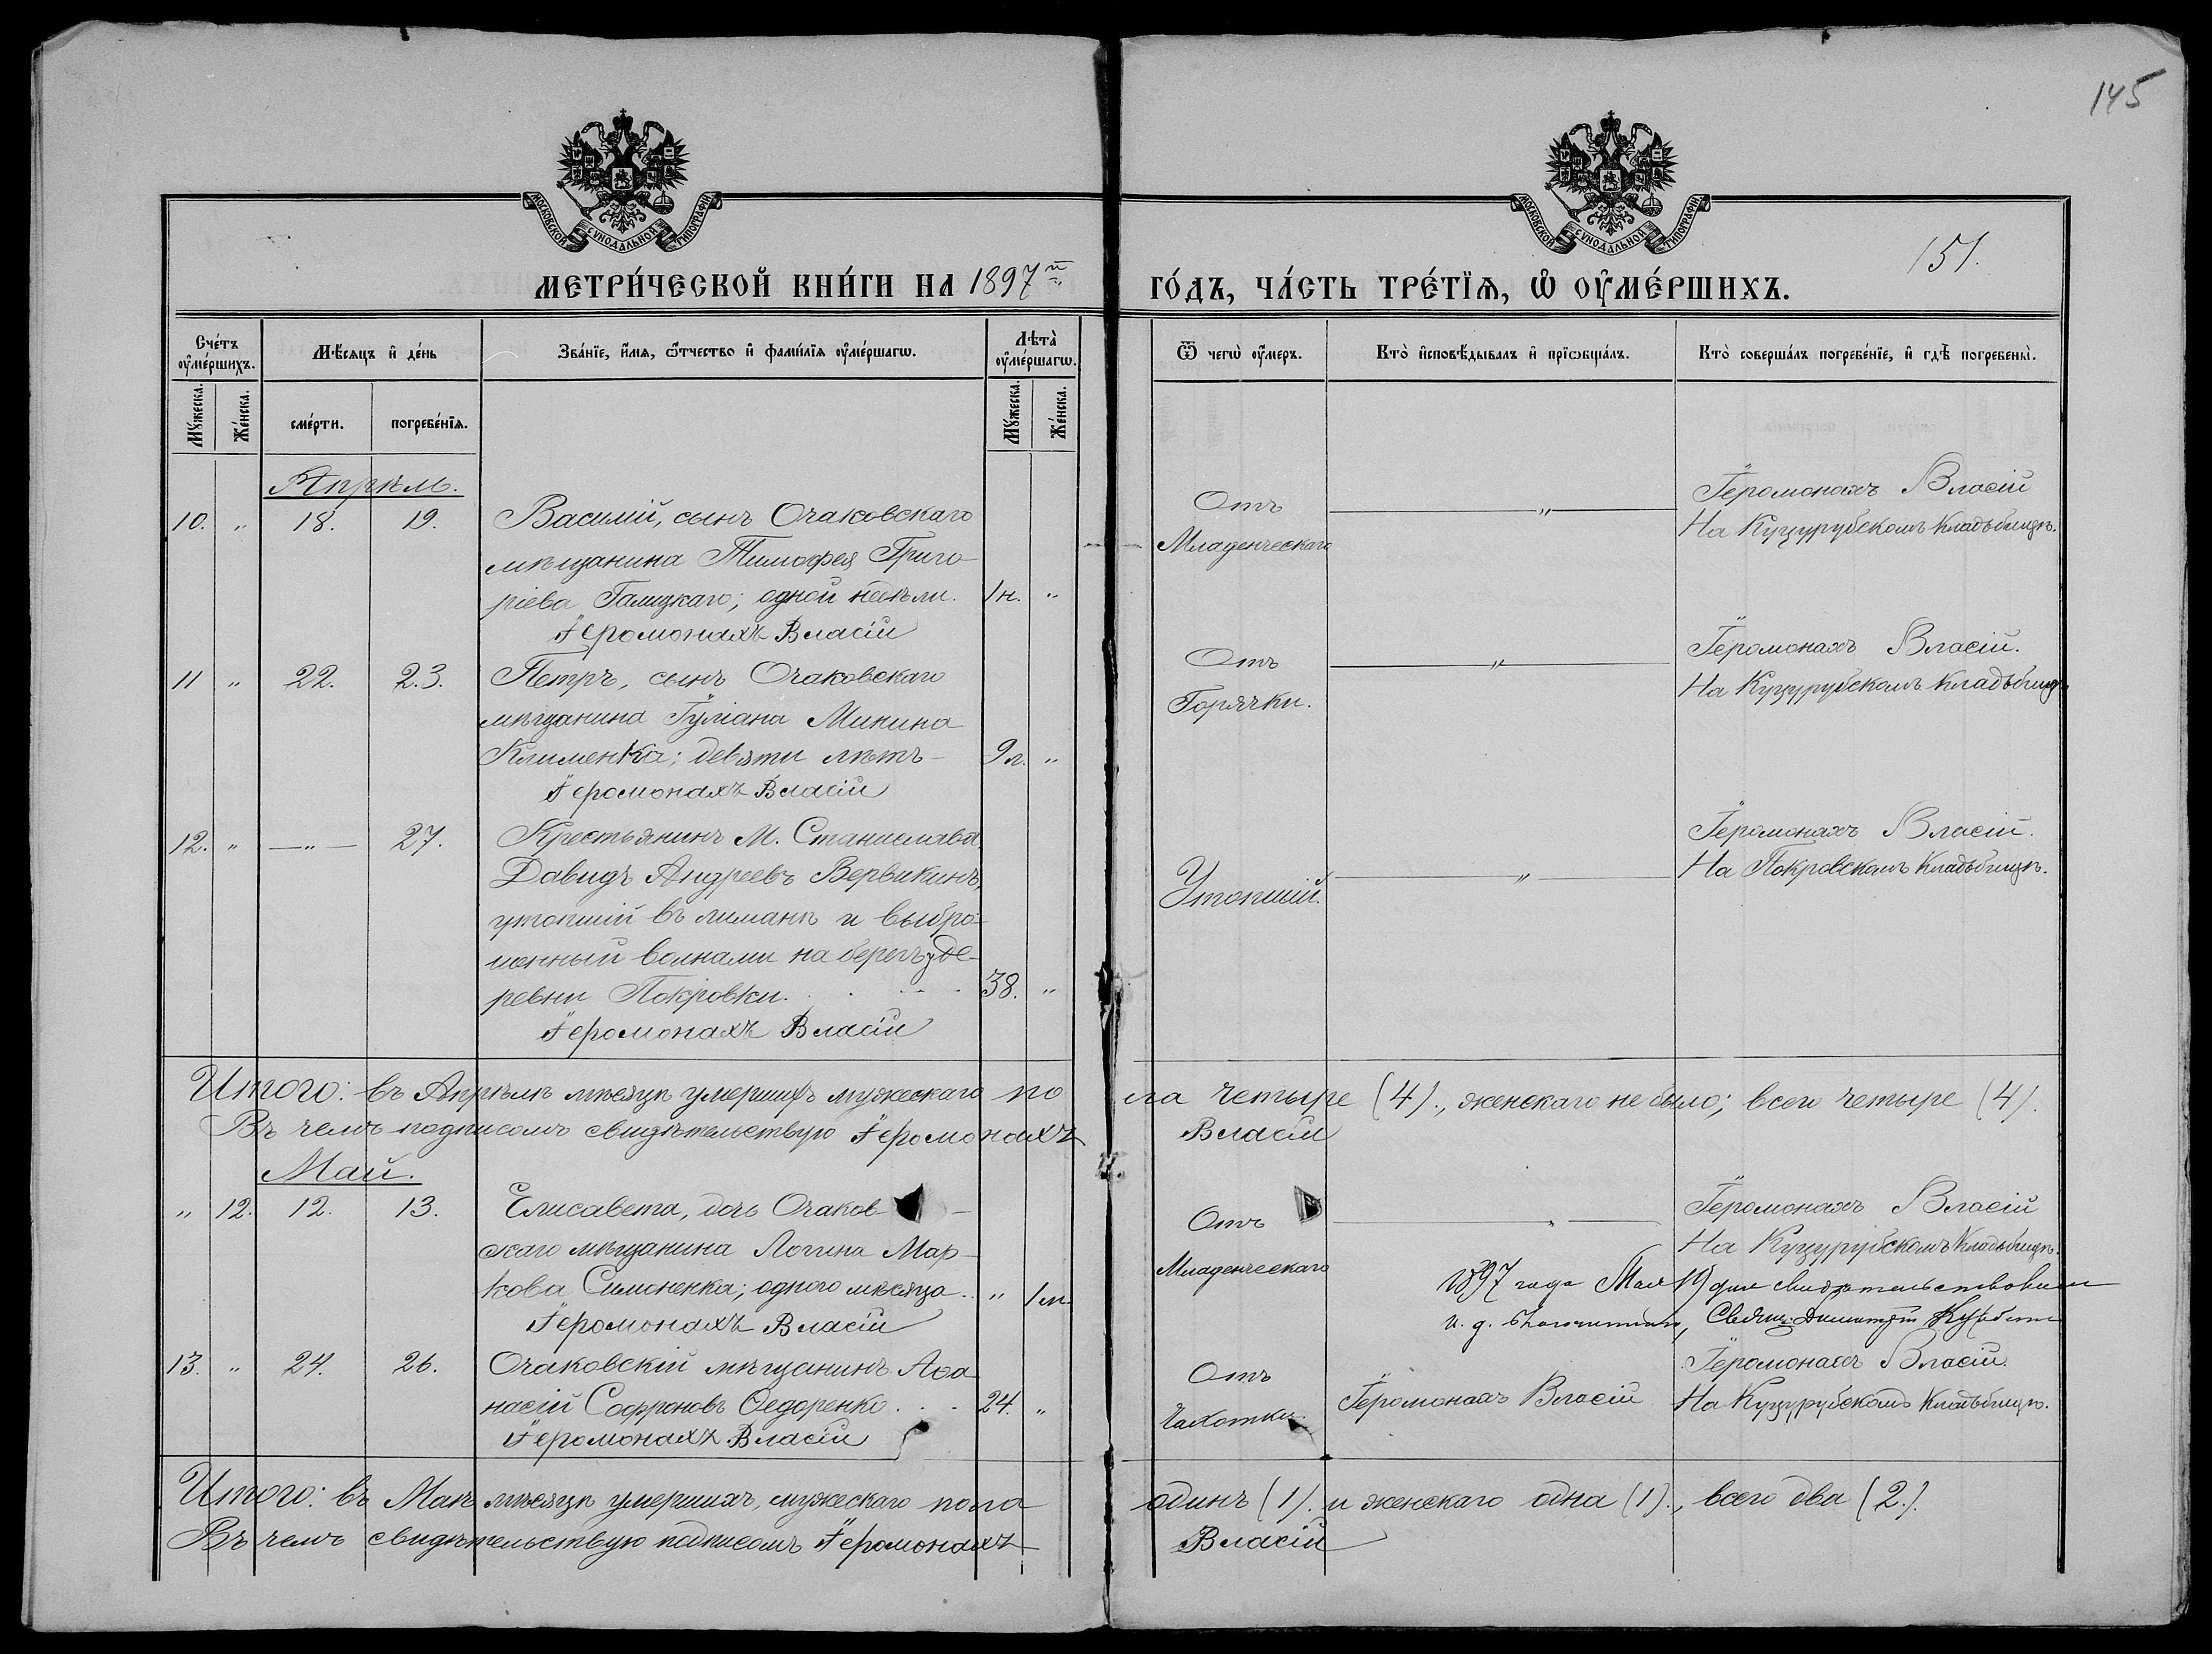 145
МОСКОВСКОЙ СѴНОДАЛЬНОЙ ТИПОГРАФІИ
МОСКОВСКОЙ СѴНОДАЛЬНОЙ ТИПОГРАФІИ
151.
МЕТРИ́ЧЕСКОЙ КНИ́ГИ НА 1897й
ГО́ДЪ, ЧА́СТЬ ТРЕ́ТЇѦ, Ѡ ОУМЕ́РШИХЪ.
Сче́тъ оумершихъ.
Мѣ́сяцъ и де́нь
Зва́нїе, и́мя, о́тчество и фами́лїя оуме́ршагѡ.
Лѣта̀ оуме́ршагѡ.
Ѿ чегѡ̀ оу́меръ.
Кто̀ и̂сповѣ́дывалъ и̂ прїѡбща́лъ.
Кто̀ соверша́лъ погребе́нїе, и̂ гдѣ̀ погребены̀.
Мꙋ́жеска.
Же́нска.
сме́рти.
погребе́нїя.
Мꙋ́жеска.
Же́нска.
Апрѣль.
10. „ 18. 19. Василій, сынъ Очаковскаго
мѣщанина Тимофея Григо-
ріева Галицкаго; одной недѣли. 1 н. „
Іеромонахъ Власій
Отъ
Младенческаго
„
Іеромонахъ Власій
На Куцурубскомъ Кладбищѣ.
11 „ 22. 23. Петръ, сынъ Очаковскаго
мѣщанина Іуліана Минина
Клименка; девяти лѣтъ – 9 л. „
Іеромонахъ Власій
Отъ
Горячки.
„
Іеромонахъ Власій.
На Куцурубскомъ Кладбищѣ
12. „ —„— 27. Крестьянинъ М. Станислава
Давидъ Андреевъ Вервикинъ,
утопшій въ лиманѣ и выбро-
шенный волнами на берегъ у де-
ревни Покровки. 38. „
Іеромонахъ Власій
Утопшій.
„
Іеромонахъ Власій.
На Покровскомъ Кладбищѣ.
Итого: въ Апрѣлѣ мѣсяцѣ умершихъ мужескаго по ла четыре (4)., женскаго не было; всего четыре (4).
Въ чемъ подписомъ свидѣтельствую Іеромонахъ Власій
Май.
„ 12. 12. 13. Елисавета, дочь Очаков-
скаго мѣщанина Логина Мар-
кова Симоненка; одного мѣсяца.. „ 1 м.
Іеромонахъ Власій
Отъ
Младенческаго
„
Іеромонахъ Власій
На Куцурубскомъ Кладбищѣ.
1897 года Мая 19 дня свидѣтельствовалъ
и. д. Благочиннаго, Священ. Димитрій
13. „ 24. 26. Очаковскій мѣщанинъ Аѳа-
насій Софроновъ Ѳедоренко . . . 24. „
Іеромонахъ Власій
Отъ
Чахотки.
Іеромонахъ Власій
Іеромонахъ Власій.
На Куцурубскомъ Кладбищѣ.
Итого: въ Маѣ мѣсяцѣ умершихъ, мужескаго пола одинъ (1). и женскаго одна (1)., всего два (2.).
Въ чемъ свидѣтельствую подписомъ Іеромонахъ Власій